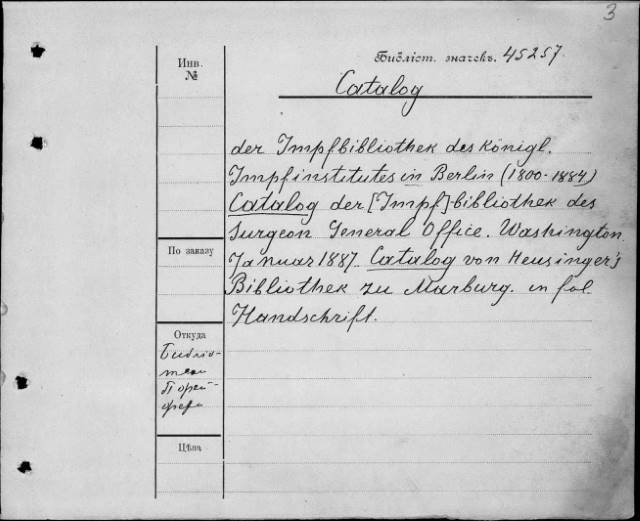 3
Инв.
№
Бібліот. значекъ. 45257.
Catalog
der Impfbibliothek des Königl.
Impfinstitutes in Berlin (1800-1884)
Catalog der [Impf]bibliothek des
Surgeon General Office. Washington
Januar 1887. Catalog von Heusinger's
Bibliothek zu Marburg. in fol.
Handschrift.
По заказу
Откуда
Библіо-
теки
Цѣна